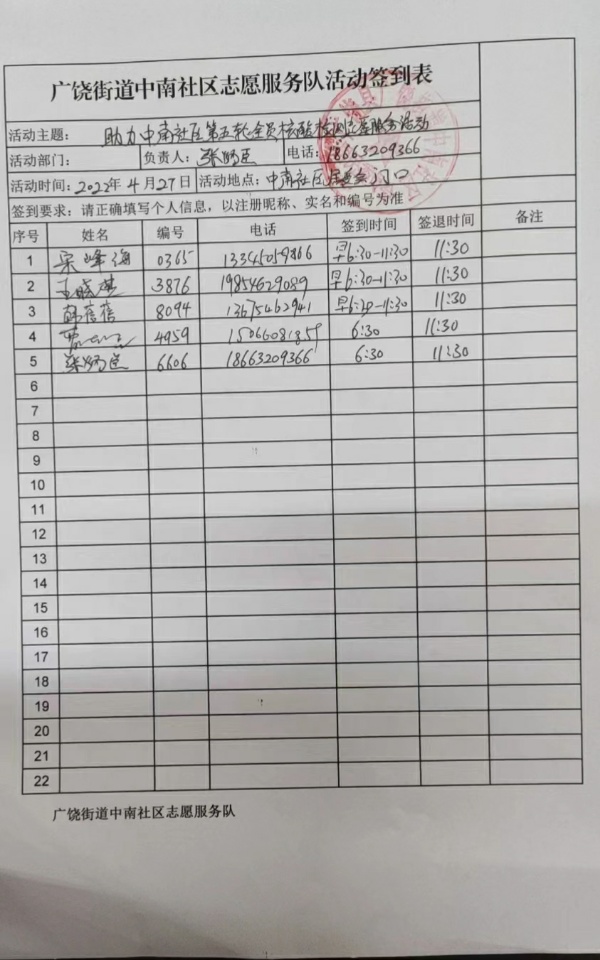 广饶街道中南社区志愿服务队活动签到表
活动主题: 助力中南社区第五轮全员核酸检测志愿服务活动
活动部门: 负责人: 张 电话: 18663209366
活动时间: 2022年4月27日 活动地点: 中南社区居委会门口
签到要求: 请正确填写个人信息, 以注册昵称、实名和编号为准
序号 姓名 编号 电话 签到时间 签退时间 备注
1 宋峰海 0365 早6:30-11:30 11:30
2 王晓 3876 19854629089 早6:30-11:30 11:30
3 韩蓓蓓 8094 13675462941 早6:30-11:30 11:30
4 4959 15066081859 6:30 11:30
5 张 6606 18663209366 6:30 11:30
6
7
8
9
10
11
12
13
14
15
16
17
18
19
20
21
22
广饶街道中南社区志愿服务队